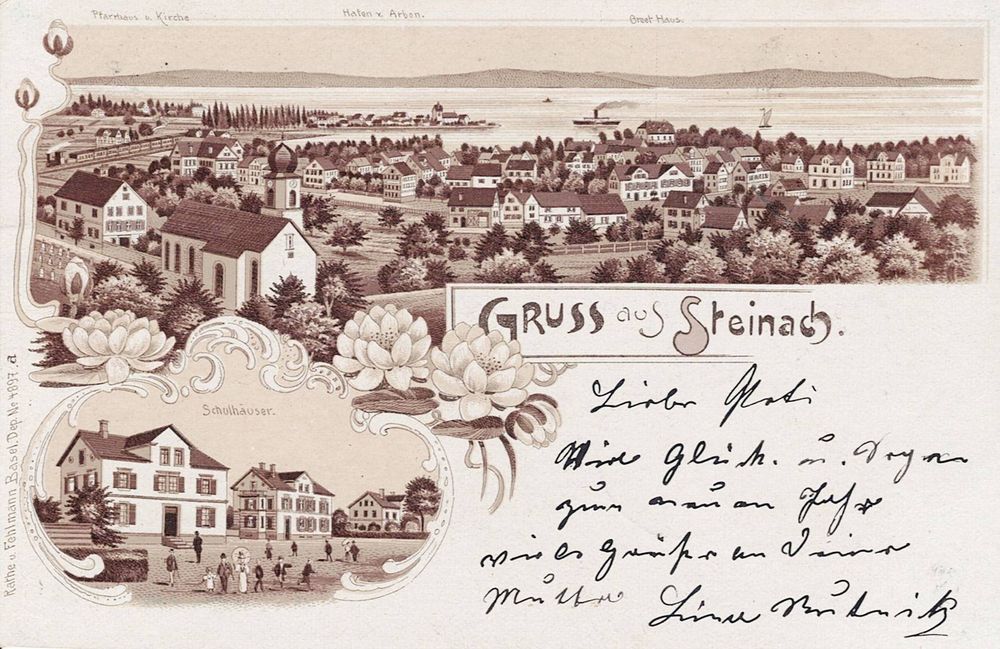 Pfarrhaus u. Kirche
Hafen v. Arbon.
Greet Haus.
GRUSS aus Steinach.
Schulhäuser.
Rathe u. Fehlmann Basel. Dep. No 4897. a
Liebe
Viele Glück. u. Segen
zum neuen Jahr
viele Grüße an Deine
Mutter